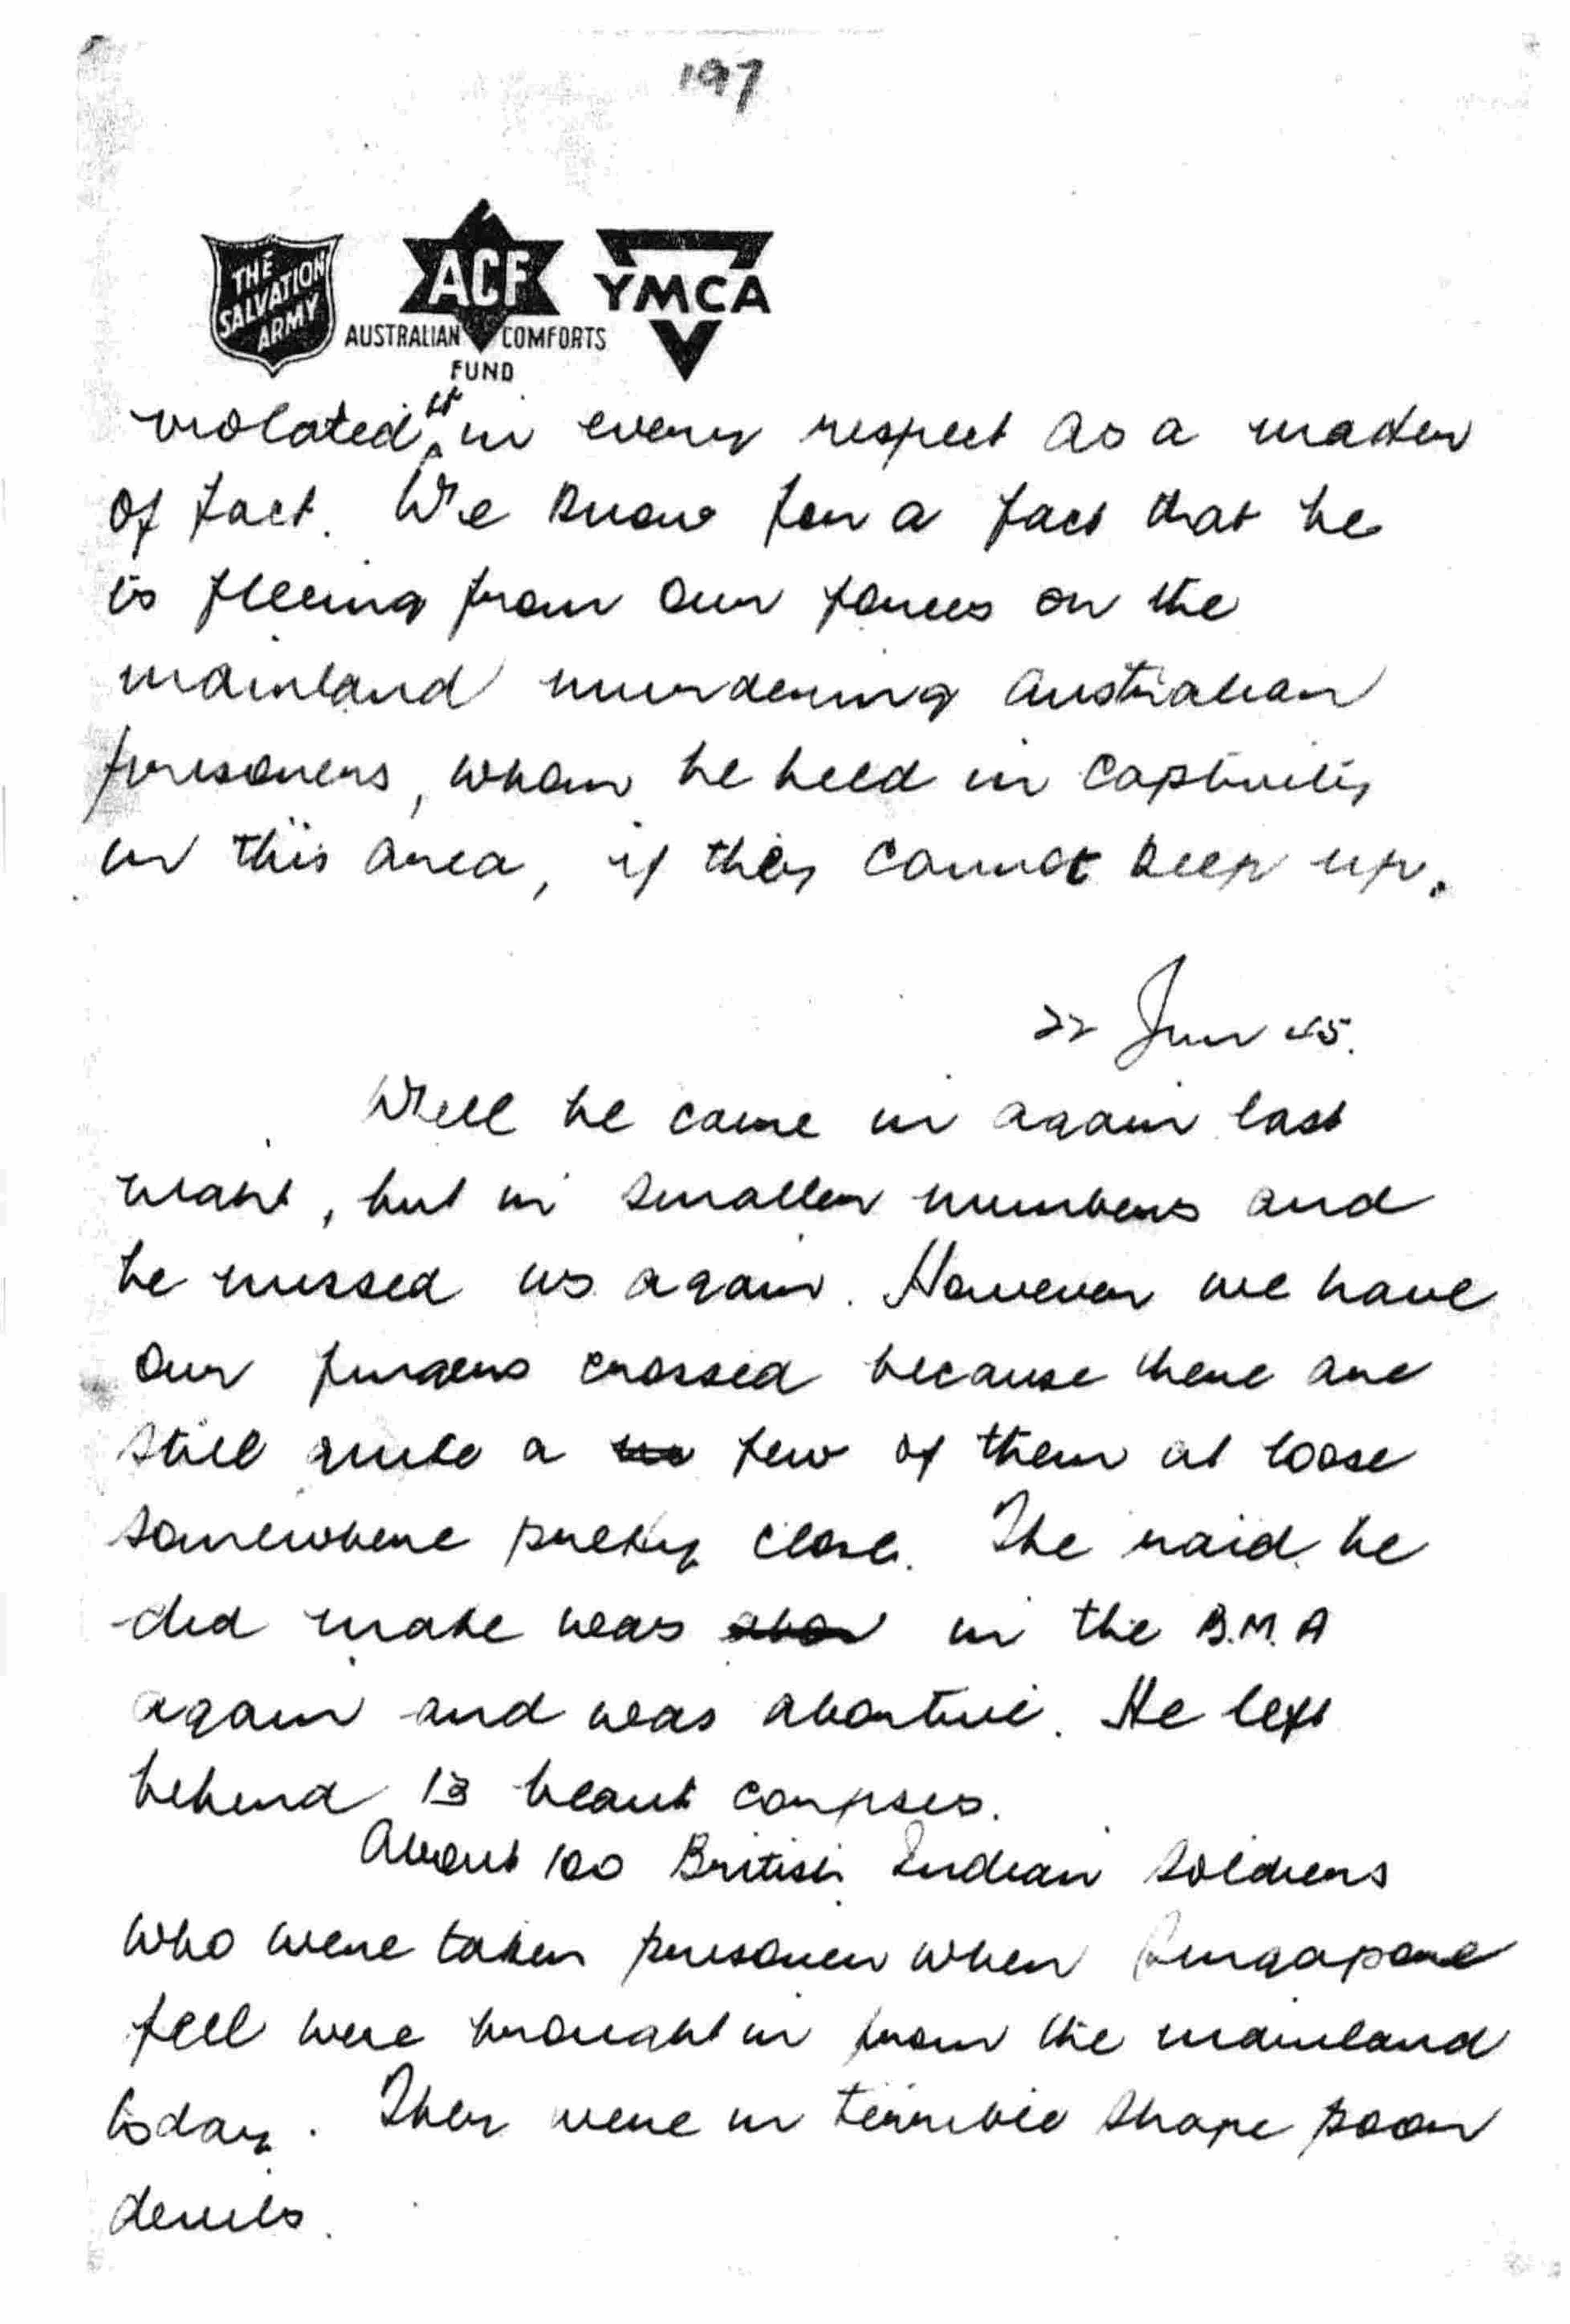 197
THE SALVATION ARMY
ACF
AUSTRALIAN COMFORTS FUND
YMCA
violated it in every respect as a matter
of fact. We know for a fact that he
is fleeing from our forces on the
mainland murdering Australian
prisoners, whom he held in captivity
in this area, if they cannot keep up.
22 Jun 45.
Well he came in again last
night, but in smaller numbers and
he missed us again. However we have
our fingers crossed because there are
still quite a few of them at loose
somewhere pretty close. The raid he
did make was in the B.M.A
again and was abortive. He left
behind 13 corpses.
About 100 British Indian Soldiers
who were taken prisoner when Singapore
fell were brought in from the mainland
today. They were in terrible shape poor
devils.